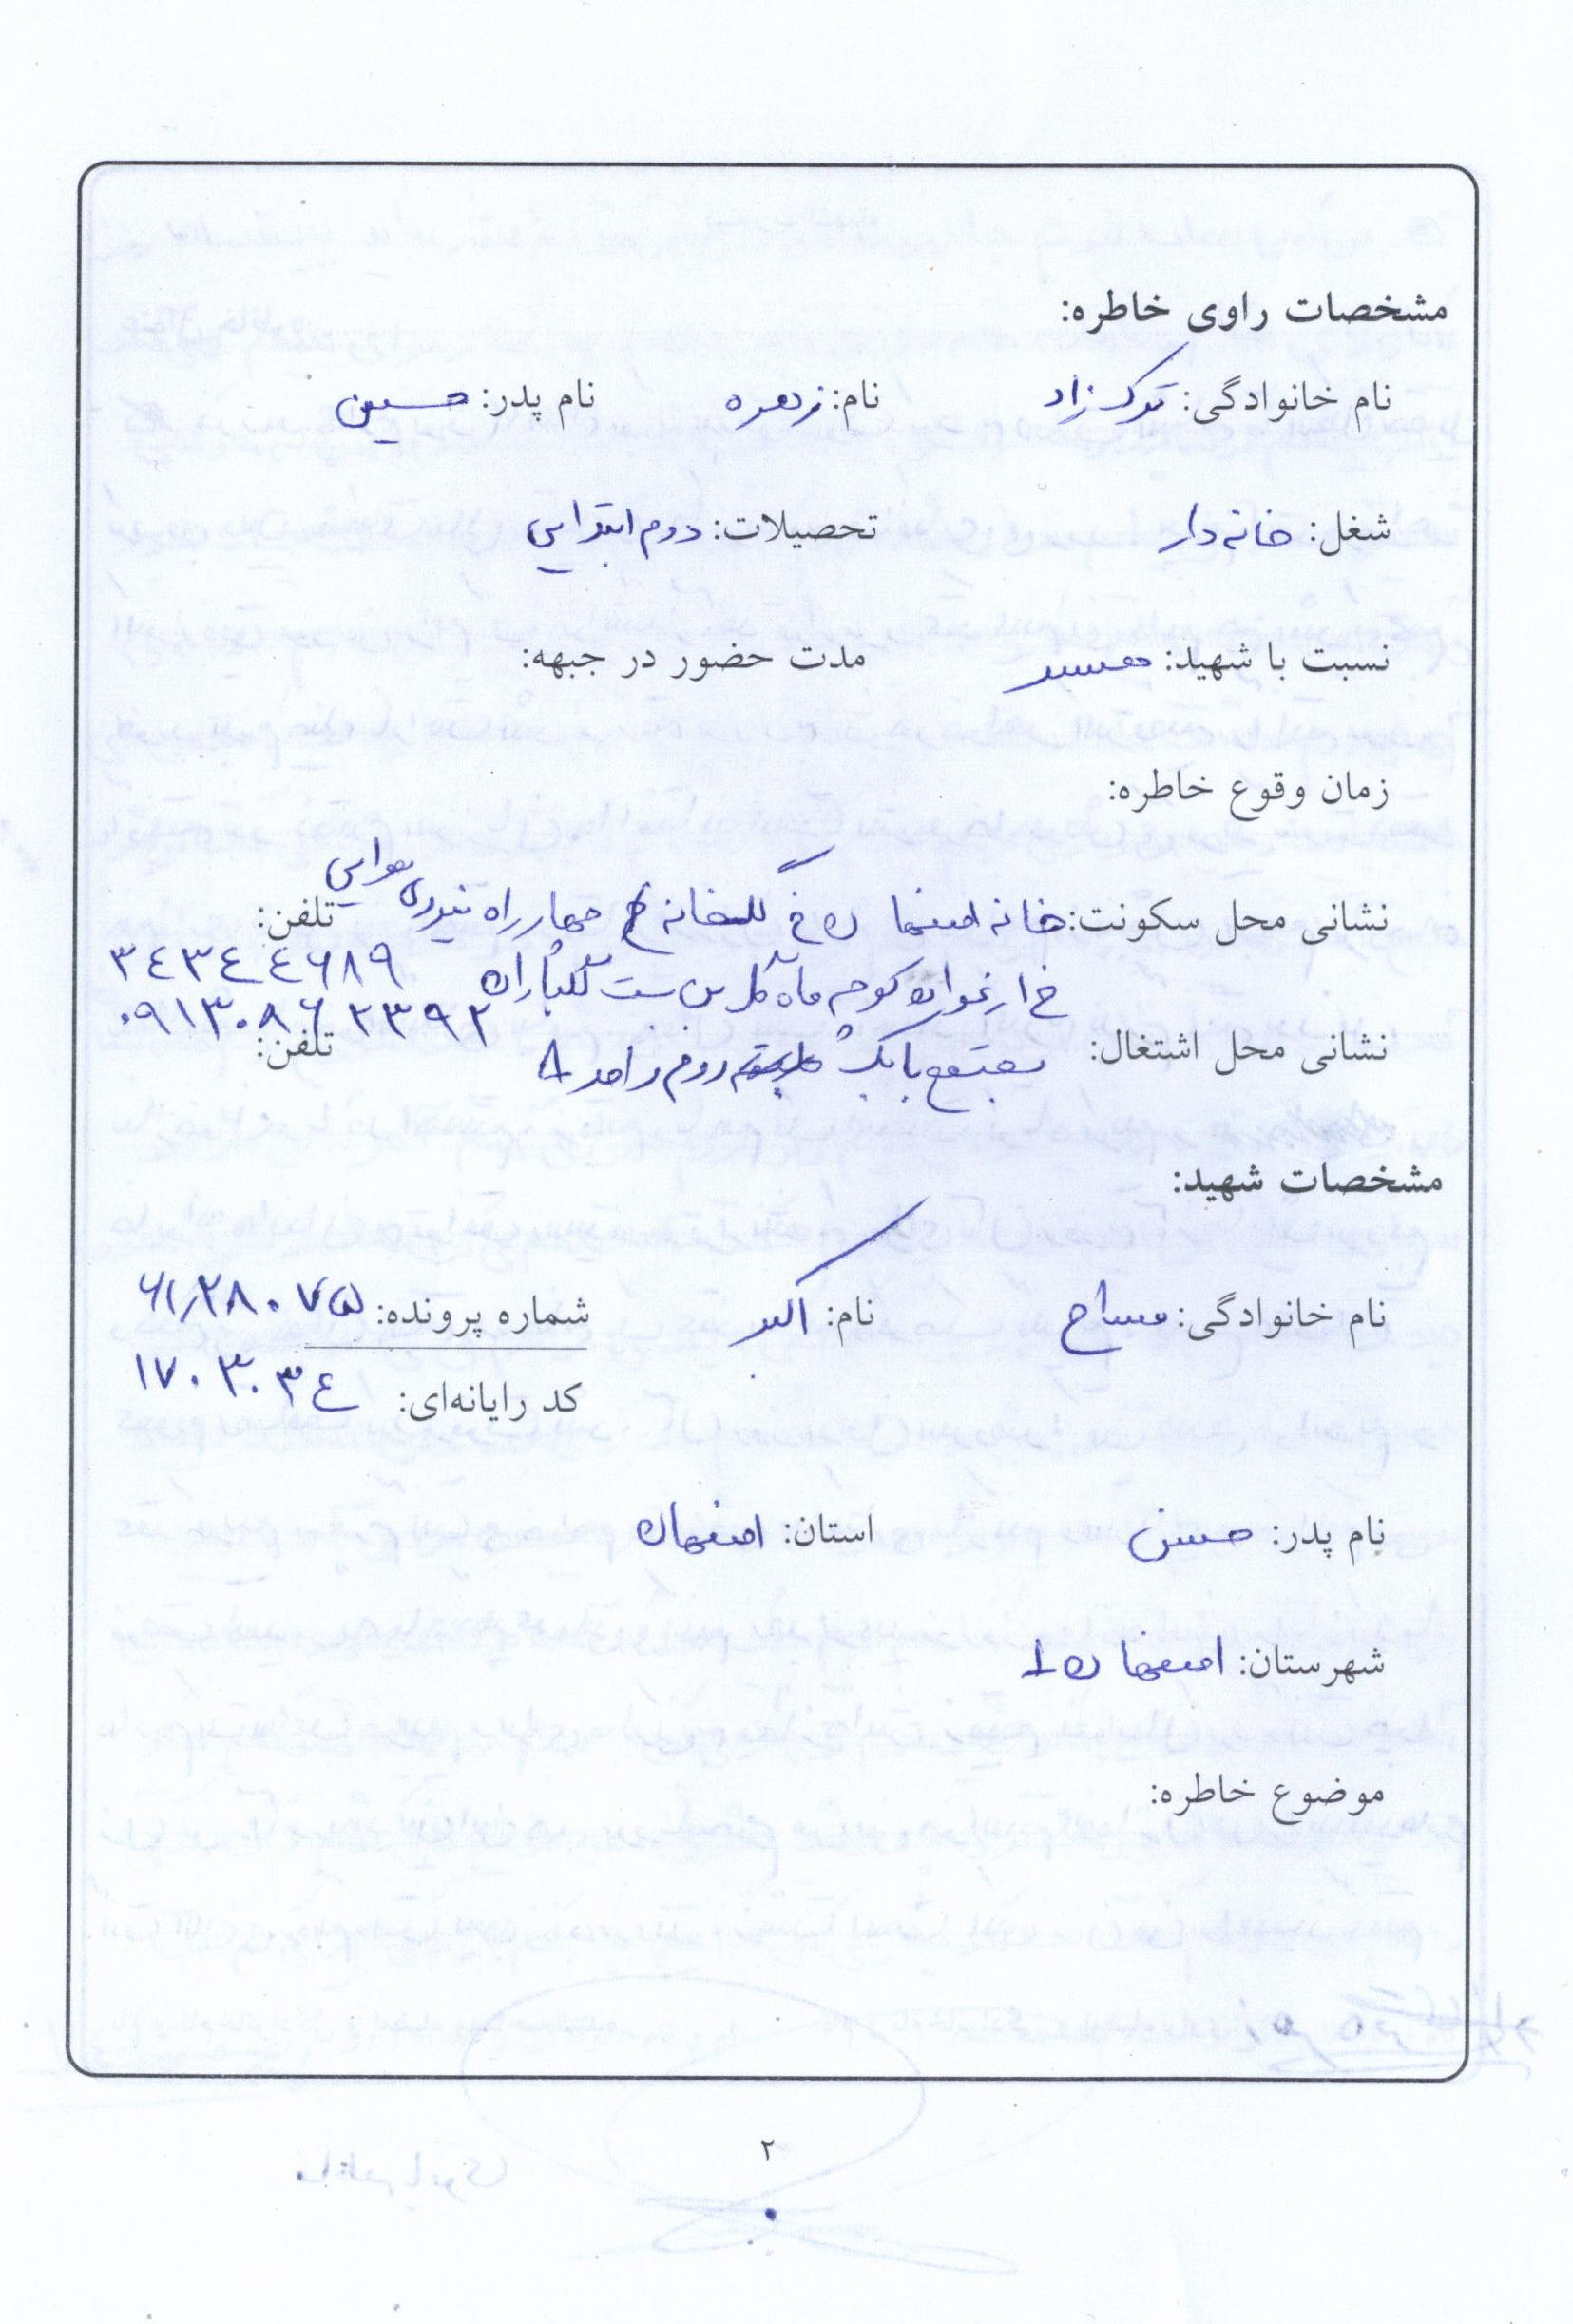 مشخصات راوی خاطره:
نام خانوادگی: ترک زاد نام: زهره نام پدر: حسین
شغل: خانه دار تحصیلات: دوم ابتدایی
نسبت با شهید: همسر مدت حضور در جبهه:
زمان وقوع خاطره:
نشانی محل سکونت: خانه اصفهان خ گلخانه چهارراه نیروی هوایی تلفن:
خ ارغوان کوچه ماه گل بن بست گلباران ۳۴۳۴۴۶۸۹
۰۹۱۳۰۸۶۲۳۹۲
نشانی محل اشتغال: مجتمع بابک طبقه دوم واحد ۸ تلفن:
مشخصات شهید:
نام خانوادگی: مساح نام: اکبر شماره پرونده: ۶۱/۲۸۰۷۵
کد رایانه‌ای: ۱۷۰۳۰۳۴
نام پدر: حسن استان: اصفهان
شهرستان: اصفهان ۱
موضوع خاطره:
۲